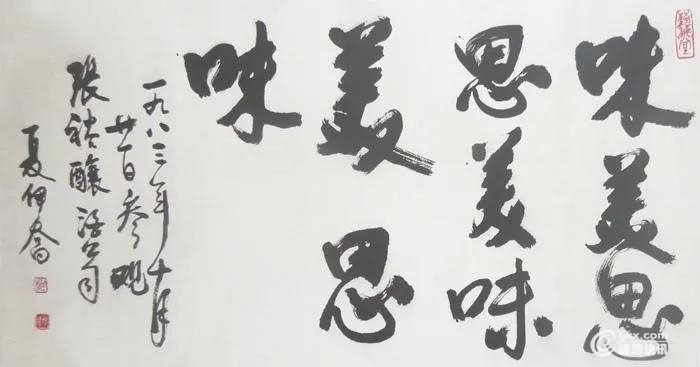 味美思
思美味
美思
味
一九八三年十月
廿一日参观
張裕釀酒公司
夏伊喬
tjkx.com
糖酒快讯